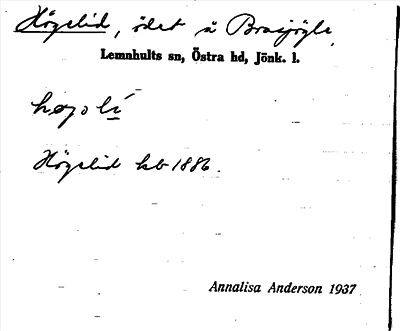 Högelid, ödet u Brasjögle,
Lemnhults sn, Östra hd, Jönk. l.
Högelid hb 1886.
Annalisa Anderson 1937